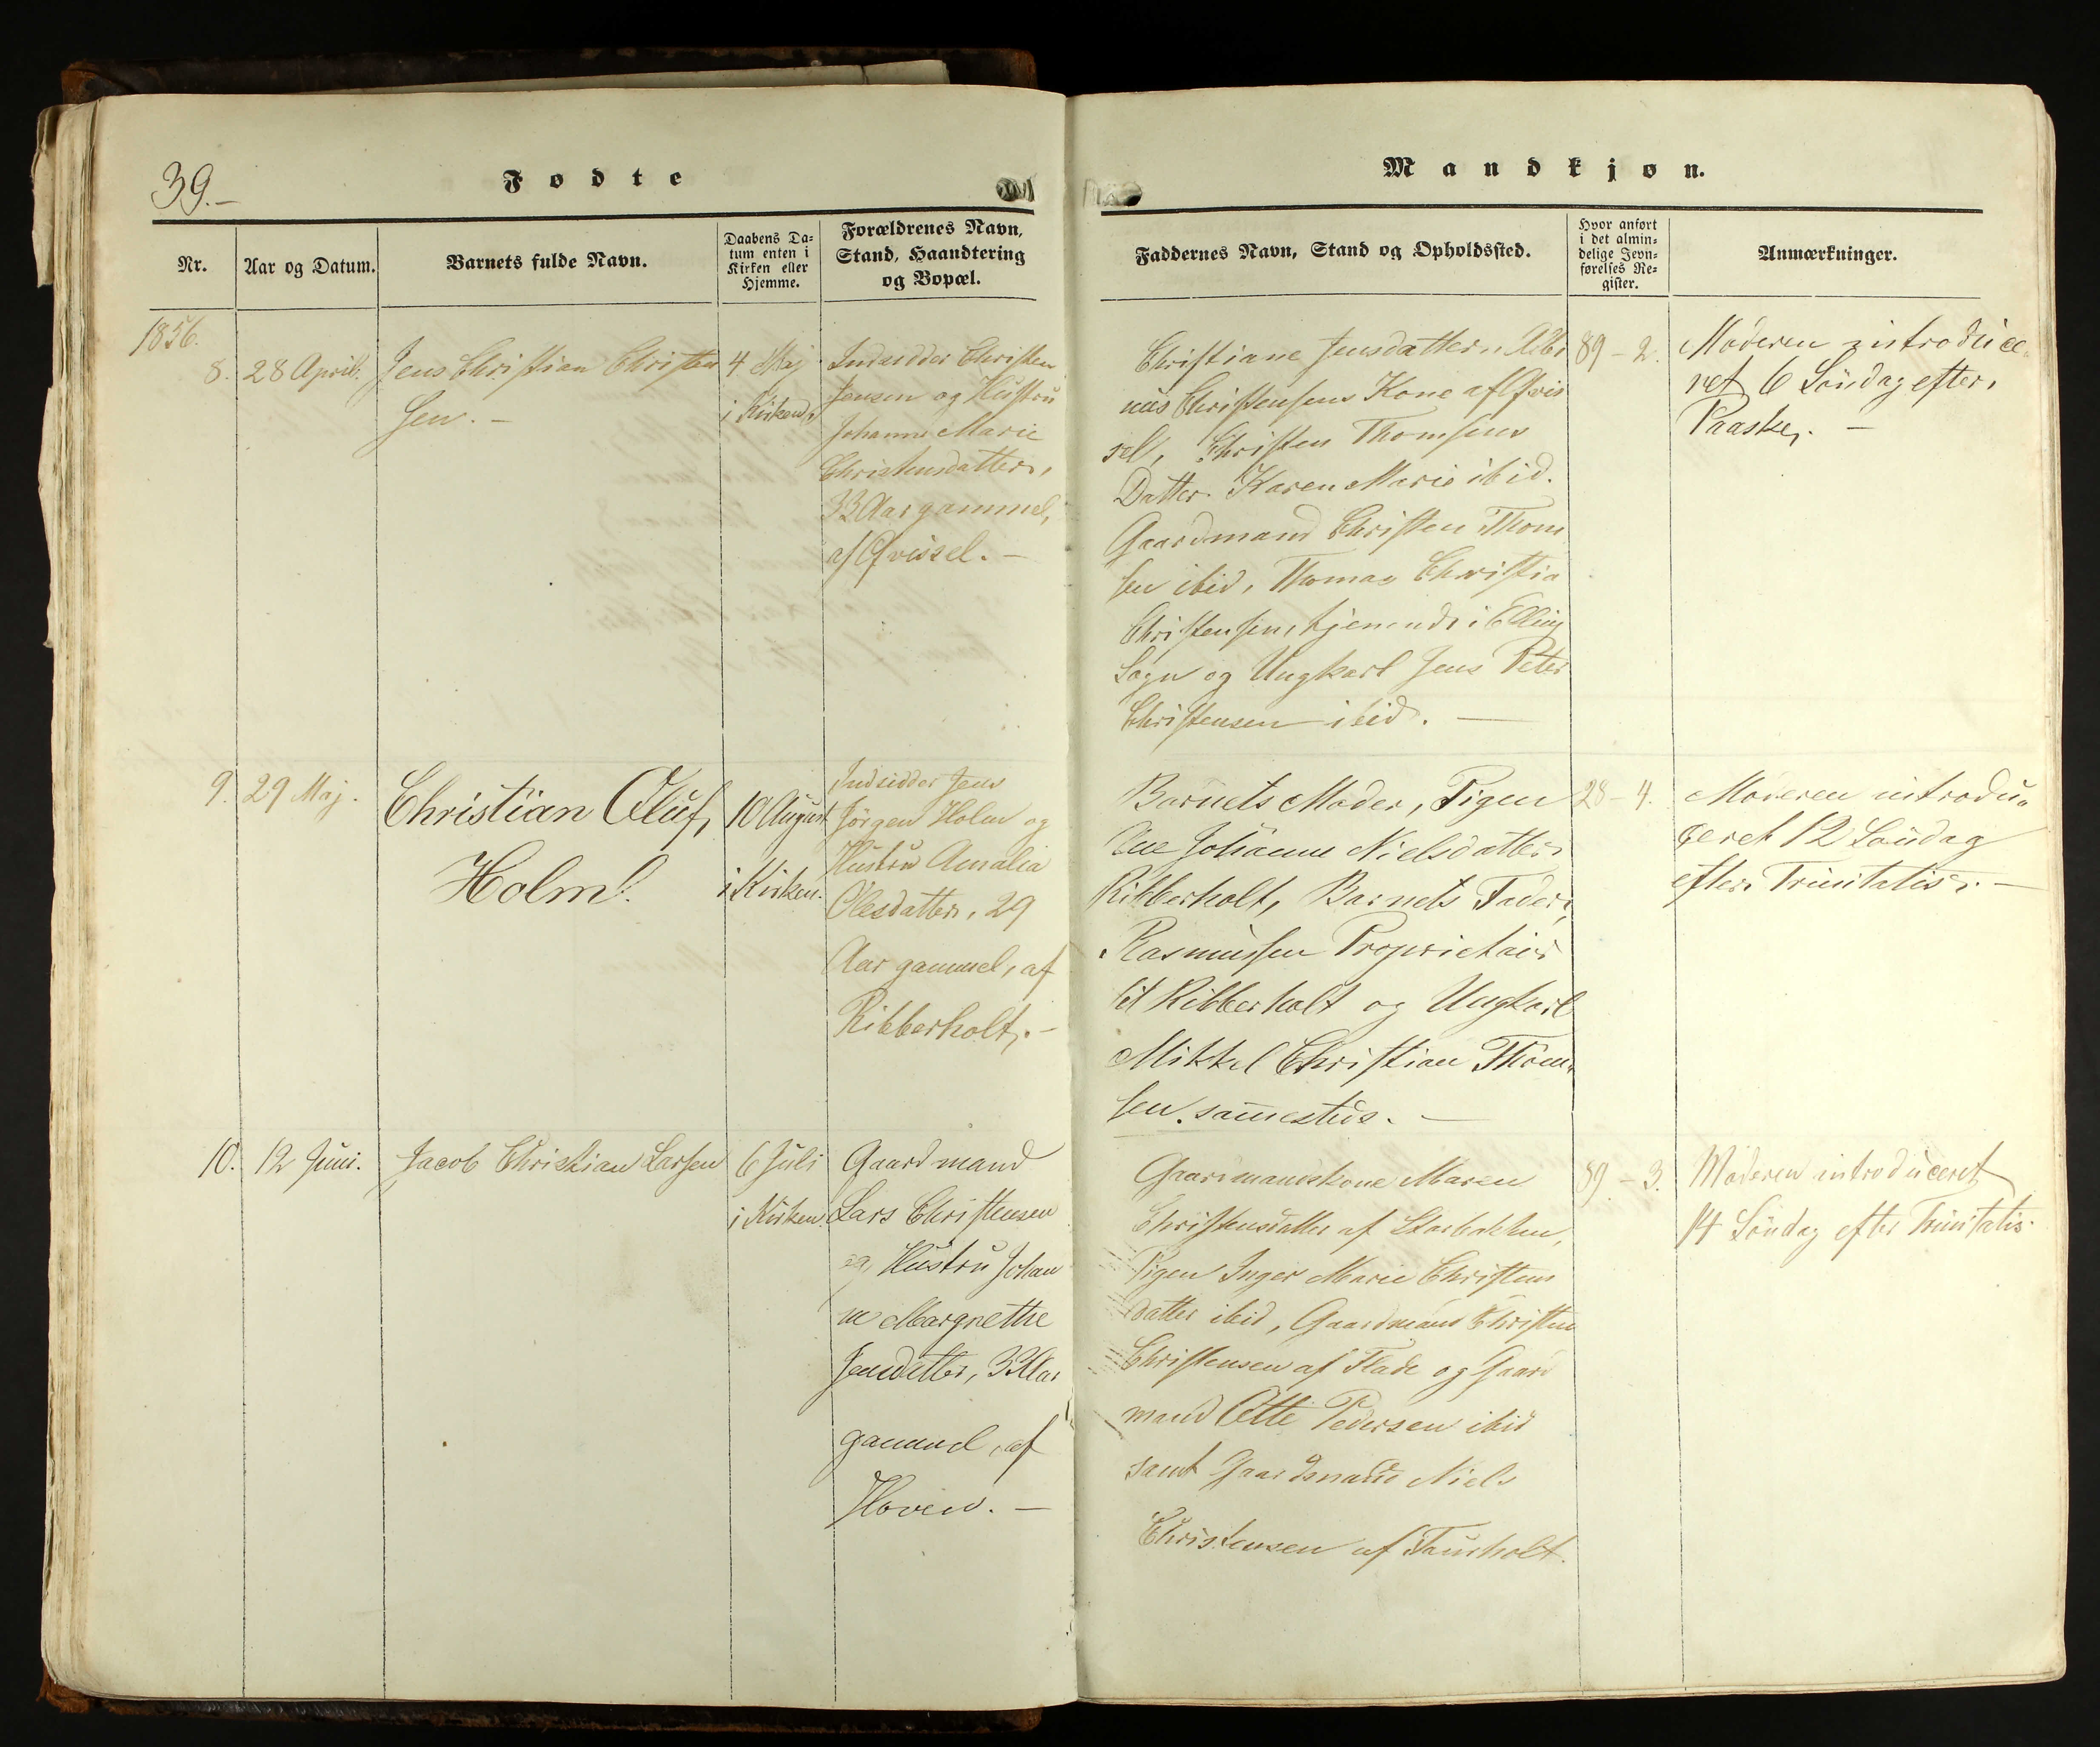 39.-
Fødte
Mandkjøn.
Nr.
Aar og Datum.
Barnets fulde Navn.
Daabens Da-
tum enten i
Kirken eller
Hjemme.
Forældrenes Navn,
Stand, Haandtering
og Bopæl.
Faddernes Navn, Stand og Opholdssted.
Hvor anført
i det almin-
delige Jevn-
førelses Re-
gister.
Anmærkninger.
1856.
8.
28 April.
Jens Christian Christen
sen.-
4 Maj
i Kirken.
Indsidder Christen
Jensen og Hustru
Johanne Marie
Christensdatter,
33 Aar gammel,
af Qvissel.-
Christiane Jensdatter,
Christensens Kone af Qvis
sel, Christen Thomsens
Datter Karen Marie ibid.
Gaardmand Christen Thom
sen ibid, Thomas Christia
Christensen, tjenende i Elling
Sogn og Ungkarl Jens Peter
Christensen ibid.-
89-2.
Moderen introduce-
ret 6 Søndag efter
Paaske.-
9.
29 Maj.
Christian Oluf
Holm.
10 August
i Kirken.
Indsidder Jens
Jørgen Holm og
Hustru Amalia
Olesdatter, 29
Aar gammel, af
Ribberholt.-
Barnets Moder, Pigen
Ane Johanne Nielsdatter
Ribberholt, Barnets Fader,
Rasmussen Proprietair
til Ribberholt og Ungkarl
Mikkel Christian Thom-
sen sammestds.-
28-4.
Moderen introdu-
ceret 12 Søndag
efter Trinitatis.-
10.
12 Juni.
Jacob Christian Larsen
6 Juli
i Kirken.
Gaardmand
Lars Christensen
og Hustru Johan
ne Margrethe
Jensdatter, 33 Aar
gammel, af
Hoven.-
Gaardmandskone Maren
Christensdatter af Starbakken,
Pigen Inger Marie Christens
datter ibid, Gaardmand Christen
Christensen af Flade og Gaard
mand Otte Pedersen ibid
samt Gaardmand Niels
Christensen af Taurholt.
89-3.
Moderen introduceret
14 Søndag efter Trinitatis.